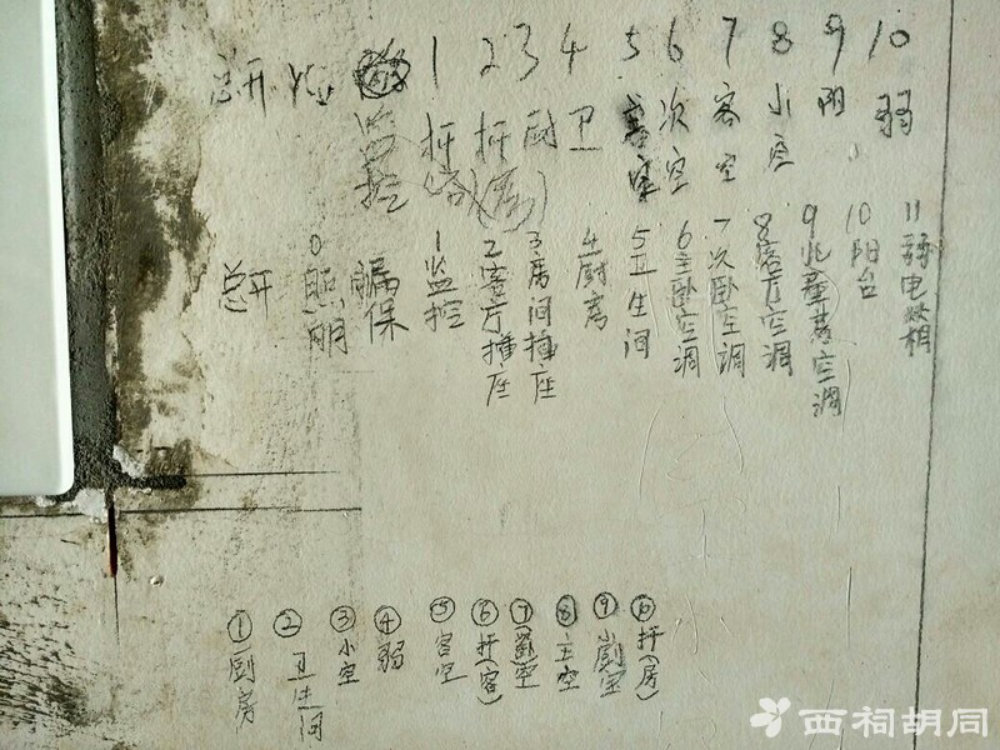 总开 监控 1 扦 2 扦(房) 3 厨 4 卫 5 6 次空 7 客空 8 小空 9 阳 10 弱
总开 0照明 漏保 1监控 2客厅插座 3房间插座 4厨房 5卫生间 6主卧空调 7次卧空调 8客厅空调 9 空调 10阳台 11弱电
①厨房 ②卫生间 ③小空 ④弱 ⑤客空 ⑥扦(客) ⑦ 空 ⑧主空 ⑨ ⑩扦(房)
西祠胡同